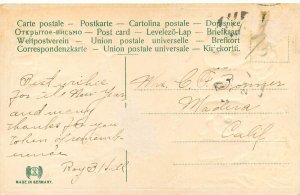 Carte postale – Postkarte – Cartolina postale – Dopisnice
Открытое письмо – Post card – Levelező-Lap – Briefkaart
Weltpostverein – Union postale universelle – Brefkort
Correspondenzkarte – Union postale universale –
Best wishes
for New Year
and many
thanks for your
token of remem
Roy B Hill
Mrs. C. F.
Madera
Calif
MADE IN GERMANY.